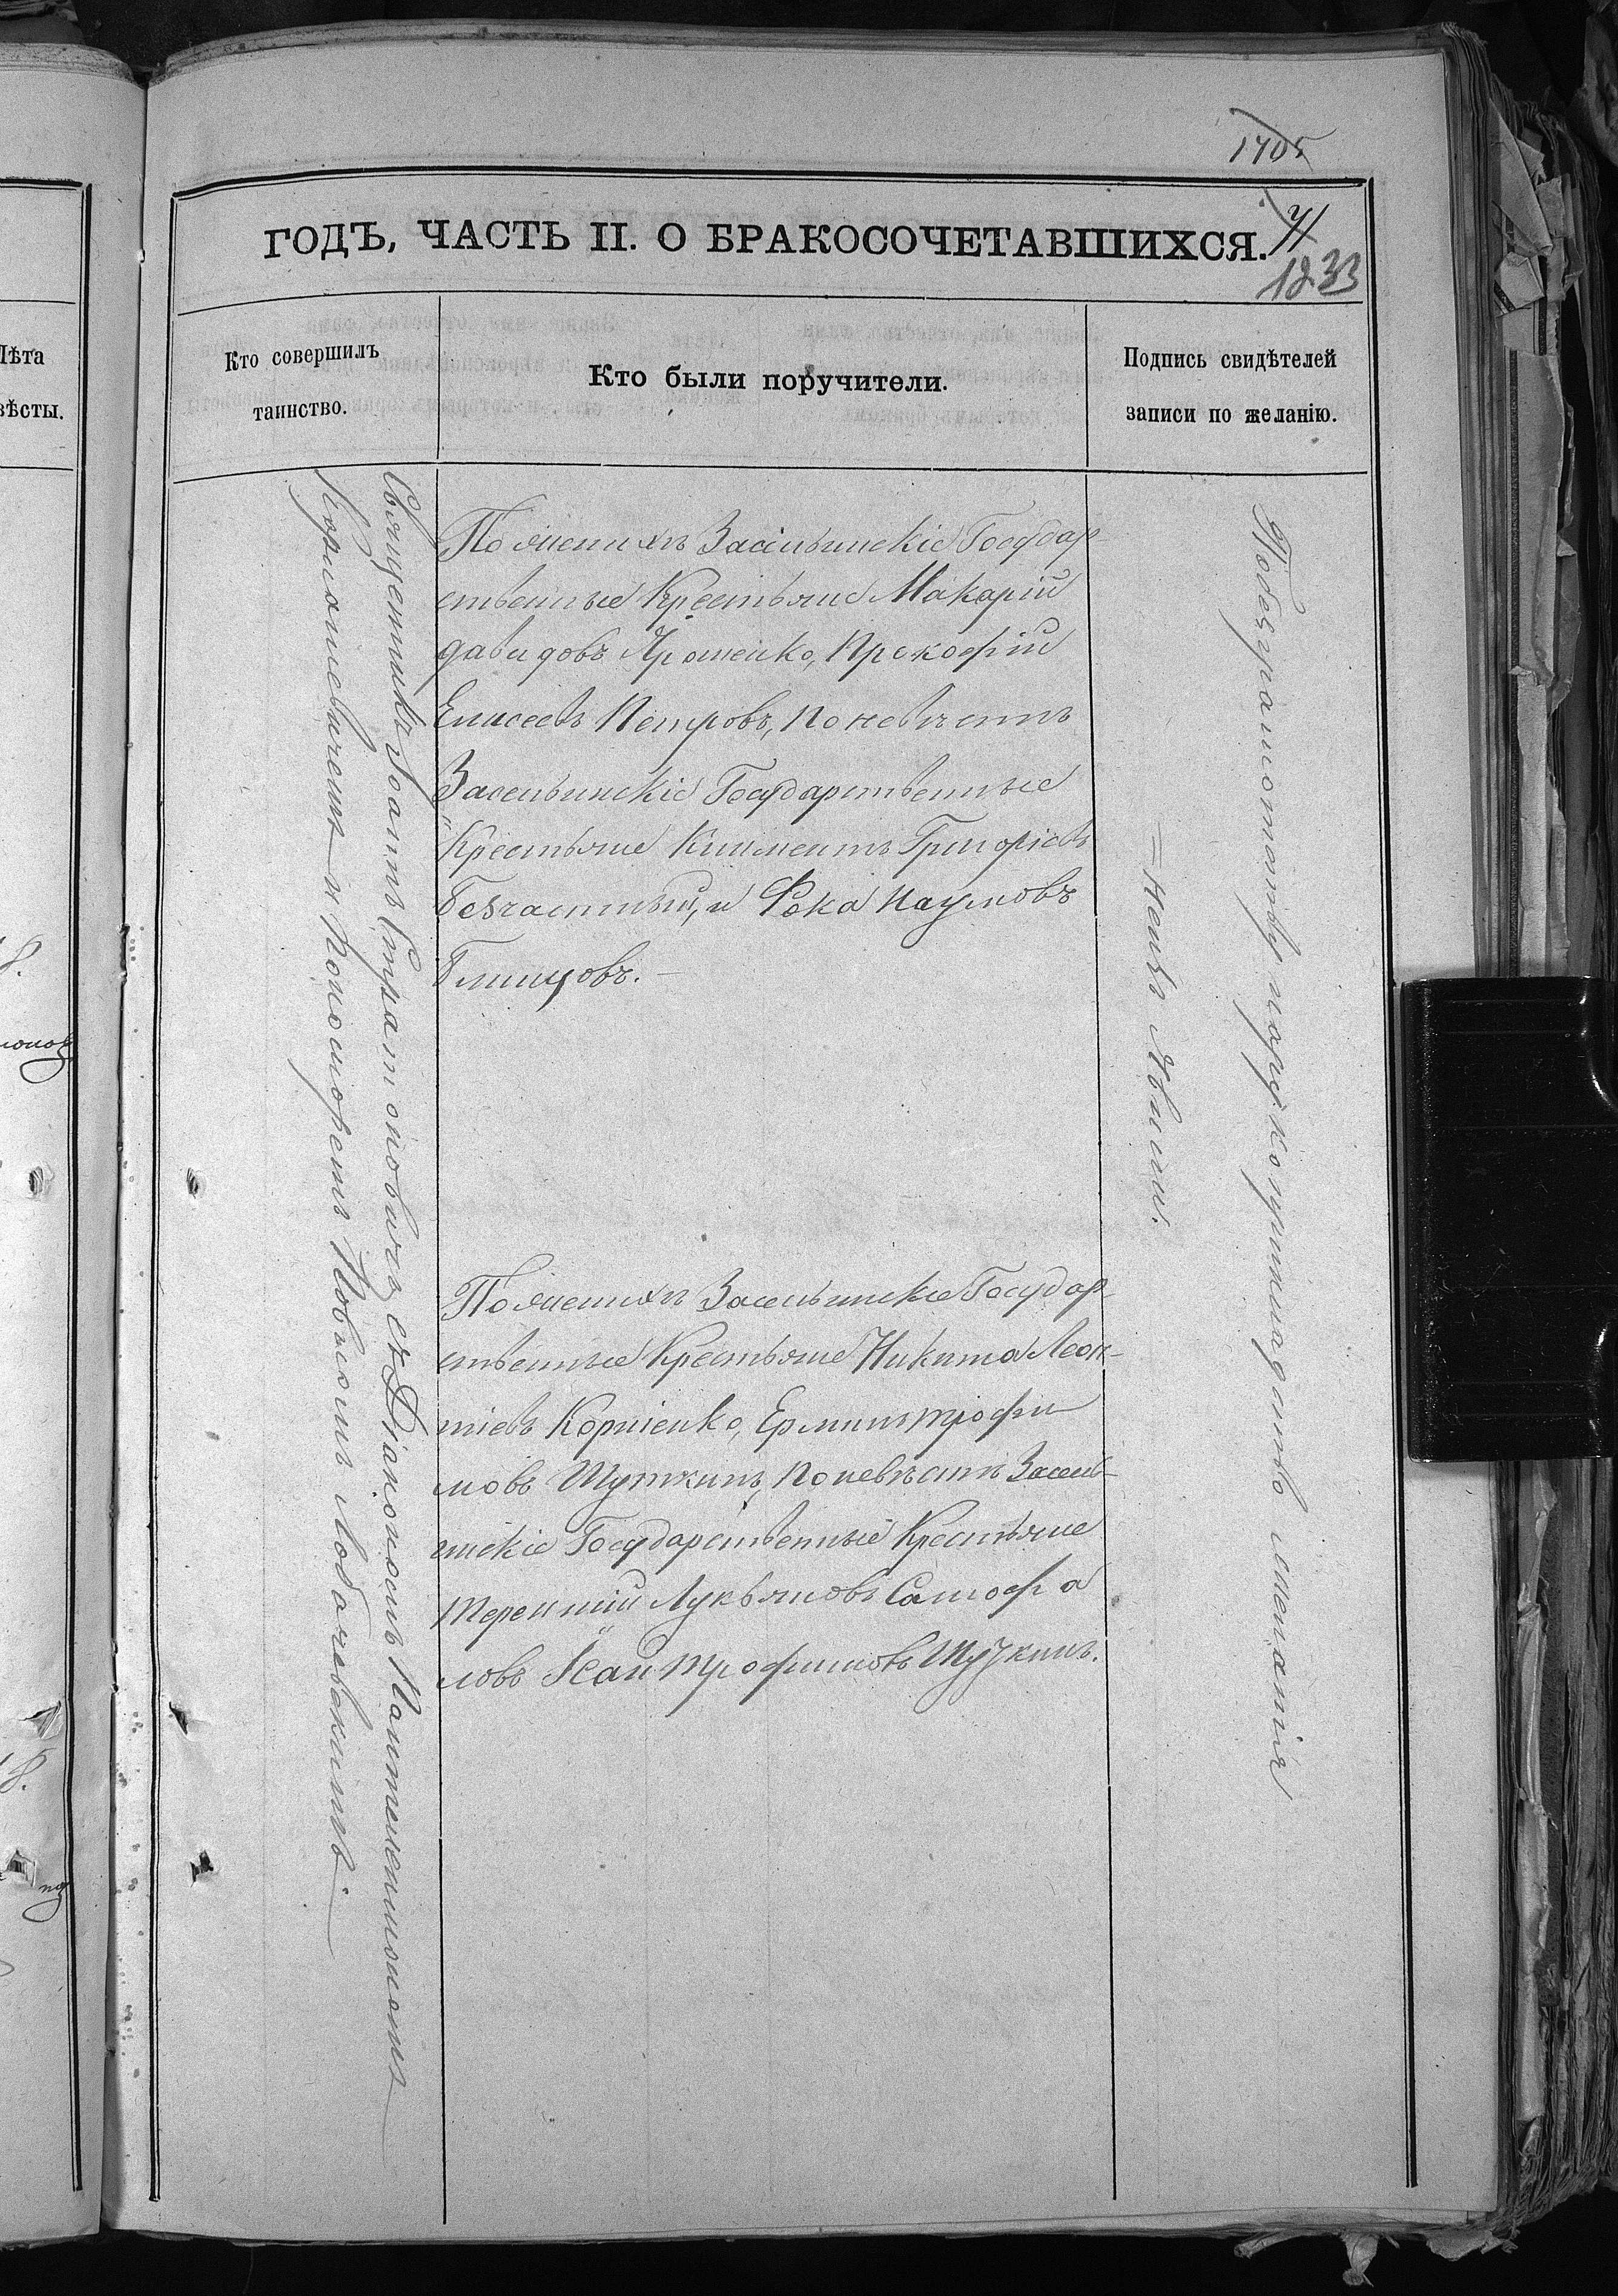 1705
ГОДЪ, ЧАСТЬ II. О БРАКОСОЧЕТАВШИХСЯ.
1233
Лѣта
вѣсты.
Кто совершилъ
таинство.
Кто были поручители.
Подпись свидѣтелей
записи по желанію.
Священникъ Іоаннъ Стратоновичъ съ Діакономъ Пантелеимономъ
Корнопевичемъ и Пономоремъ Павломъ Лобачевскимъ
По женихѣ Засельскіе Государ-
ственные Крестьяне Макарій
Давидовъ Ярошенко, Прокофій
Елисеевъ Петровъ, По невѣстѣ
Засельскіе Государственные
Крестьяне Климентъ Григоріевъ
Безчастный, и Фока Наумовъ
Глинцовъ.
По женихѣ Засельскіе Государ-
ственные Крестьяне Никита Леон-
тіевъ Корніенко, Ермилъ Трофи
мовъ Шуткинъ, По невѣстѣ Засель-
скіе Государственные Крестьяне
Терентій Лукьяновъ Самофа
ловъ Исай Трофимовъ Шуткинъ.
По безграмотству
желанія
не